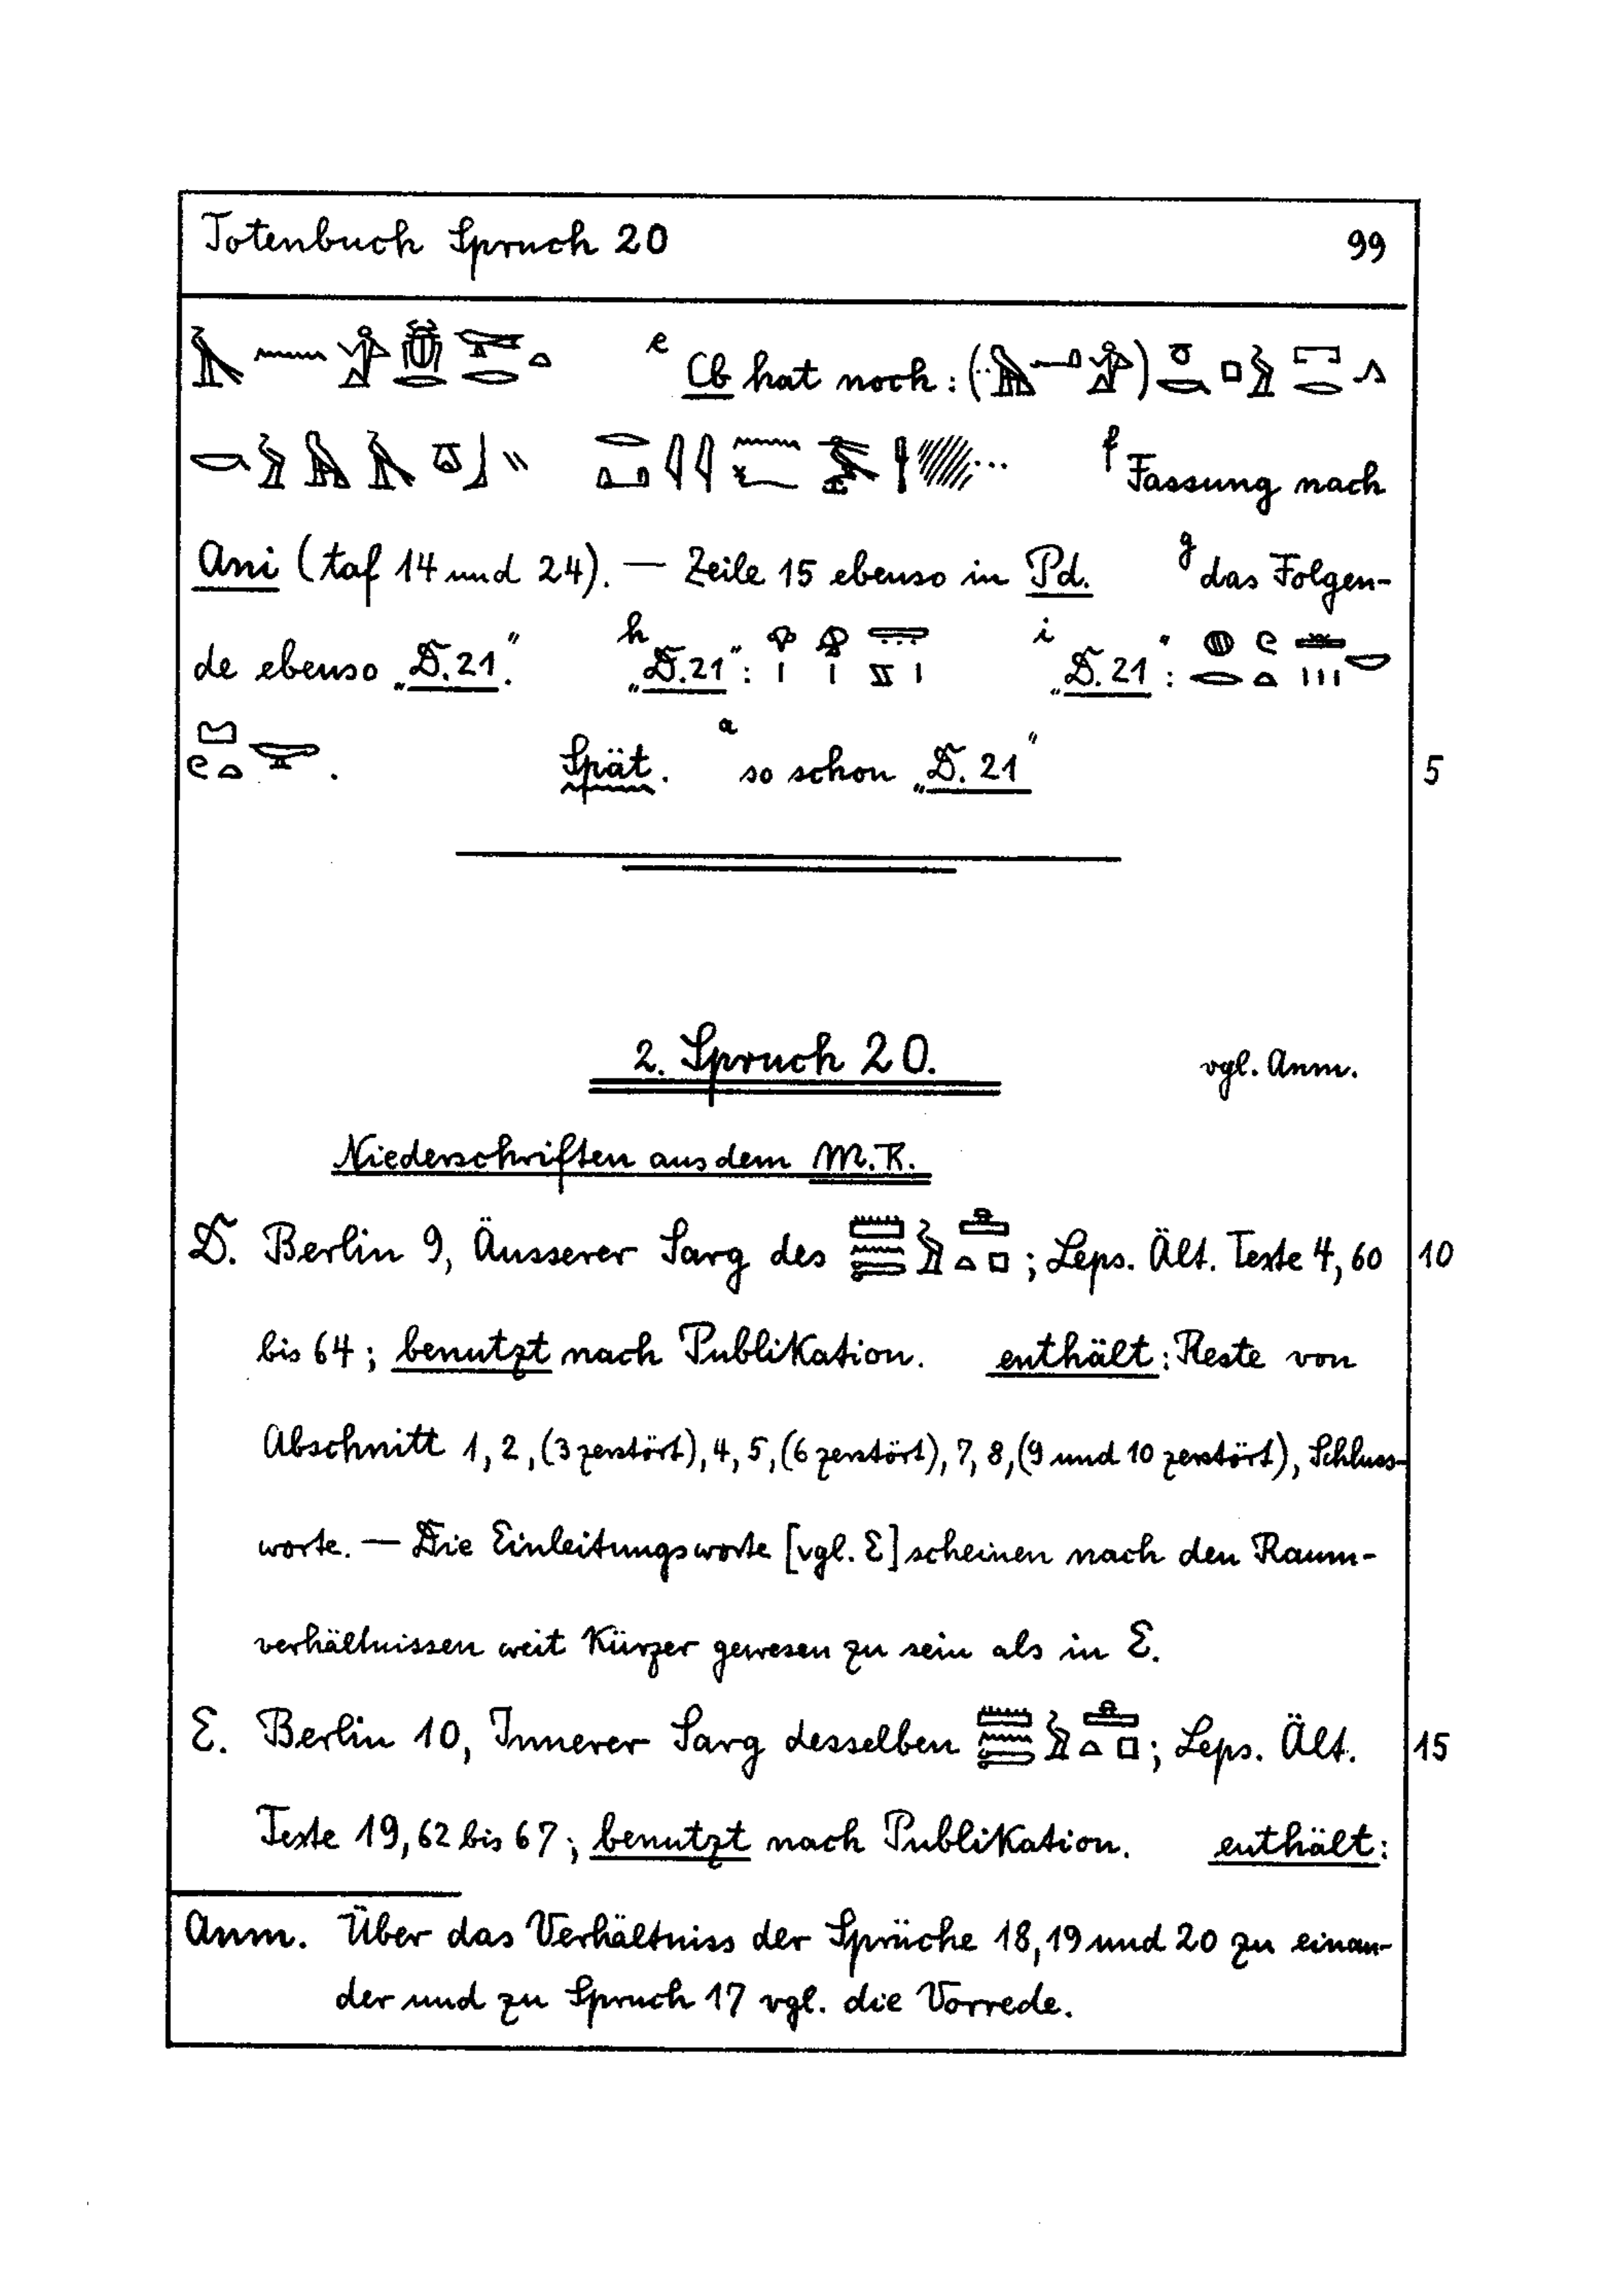 Totenbuch Spruch 20 99
e Cb hat noch: ( )
f Fassung nach
Ani (taf 14 und 24). — Zeile 15 ebenso in Pd. g das Folgen-
de ebenso „D.21." h „D.21": i „D.21":
. Spät. a so schon „D.21" 5
2. Spruch 20. vgl. Anm.
Niederschriften aus dem M.R.
D. Berlin 9, Äusserer Sarg des ; Leps. Ält. Texte 4, 60 10
bis 64; benutzt nach Publikation. enthält: Reste von
Abschnitt 1, 2, (3 zerstört), 4, 5, (6 zerstört), 7, 8, (9 und 10 zerstört), Schluss-
worte. — Die Einleitungsworte [vgl. E] scheinen nach den Raum-
verhältnissen weit kürzer gewesen zu sein als in E.
E. Berlin 10, Innerer Sarg desselben ; Leps. Ält. 15
Texte 19, 62 bis 67; benutzt nach Publikation. enthält:
Anm. Über das Verhältniss der Sprüche 18, 19 und 20 zu einan-
der und zu Spruch 17 vgl. die Vorrede.